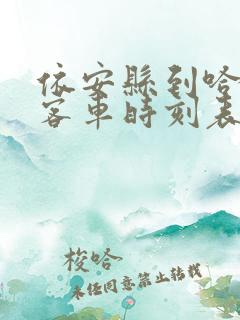 依安縣到哈
客車時刻表
梭哈
未经同意禁止转载